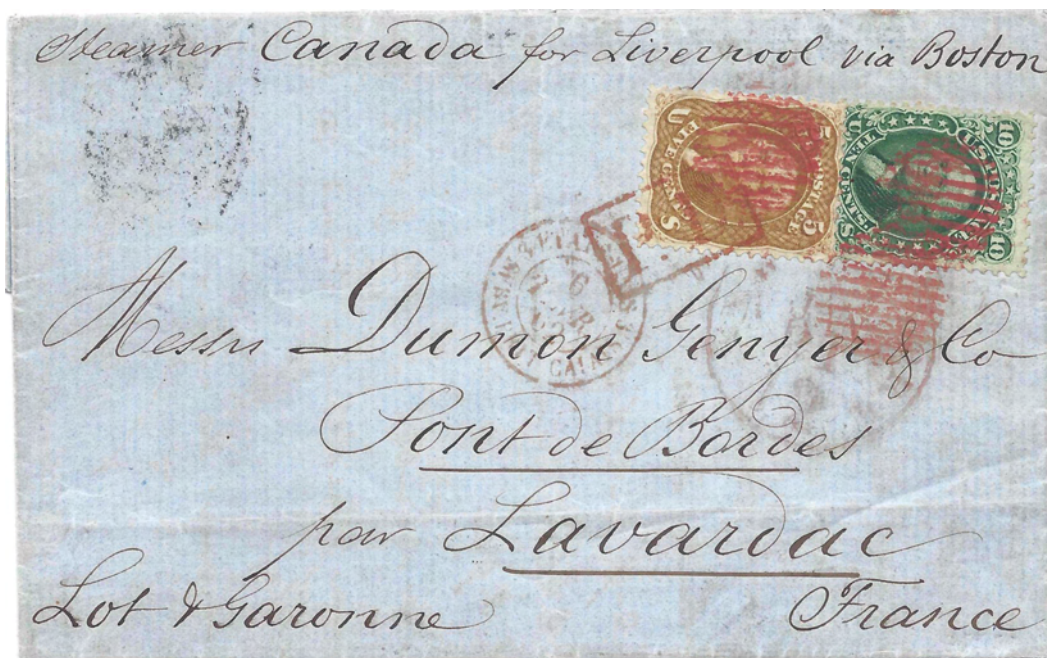 Steamer Canada for Liverpool via Boston
U S POSTAGE
FIVE CENTS
5
U.S. POSTAGE
TEN CENTS
10 10
U S
Messrs Dumon Genyer & Co
Pont de Bordes
par Lavardac
Lot & Garonne France